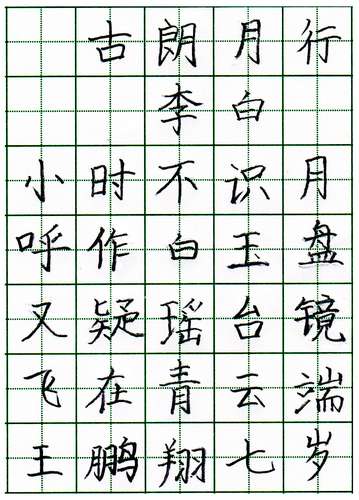 古朗月行
李白
小时不识月
呼作白玉盘
又疑瑶台镜
飞在青云端
王鹏翔七岁